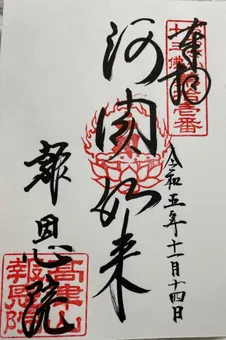 奉拝
阿閦如来
令和五年十一月十四日
報恩院
十三佛
壹番
高津山
報恩院